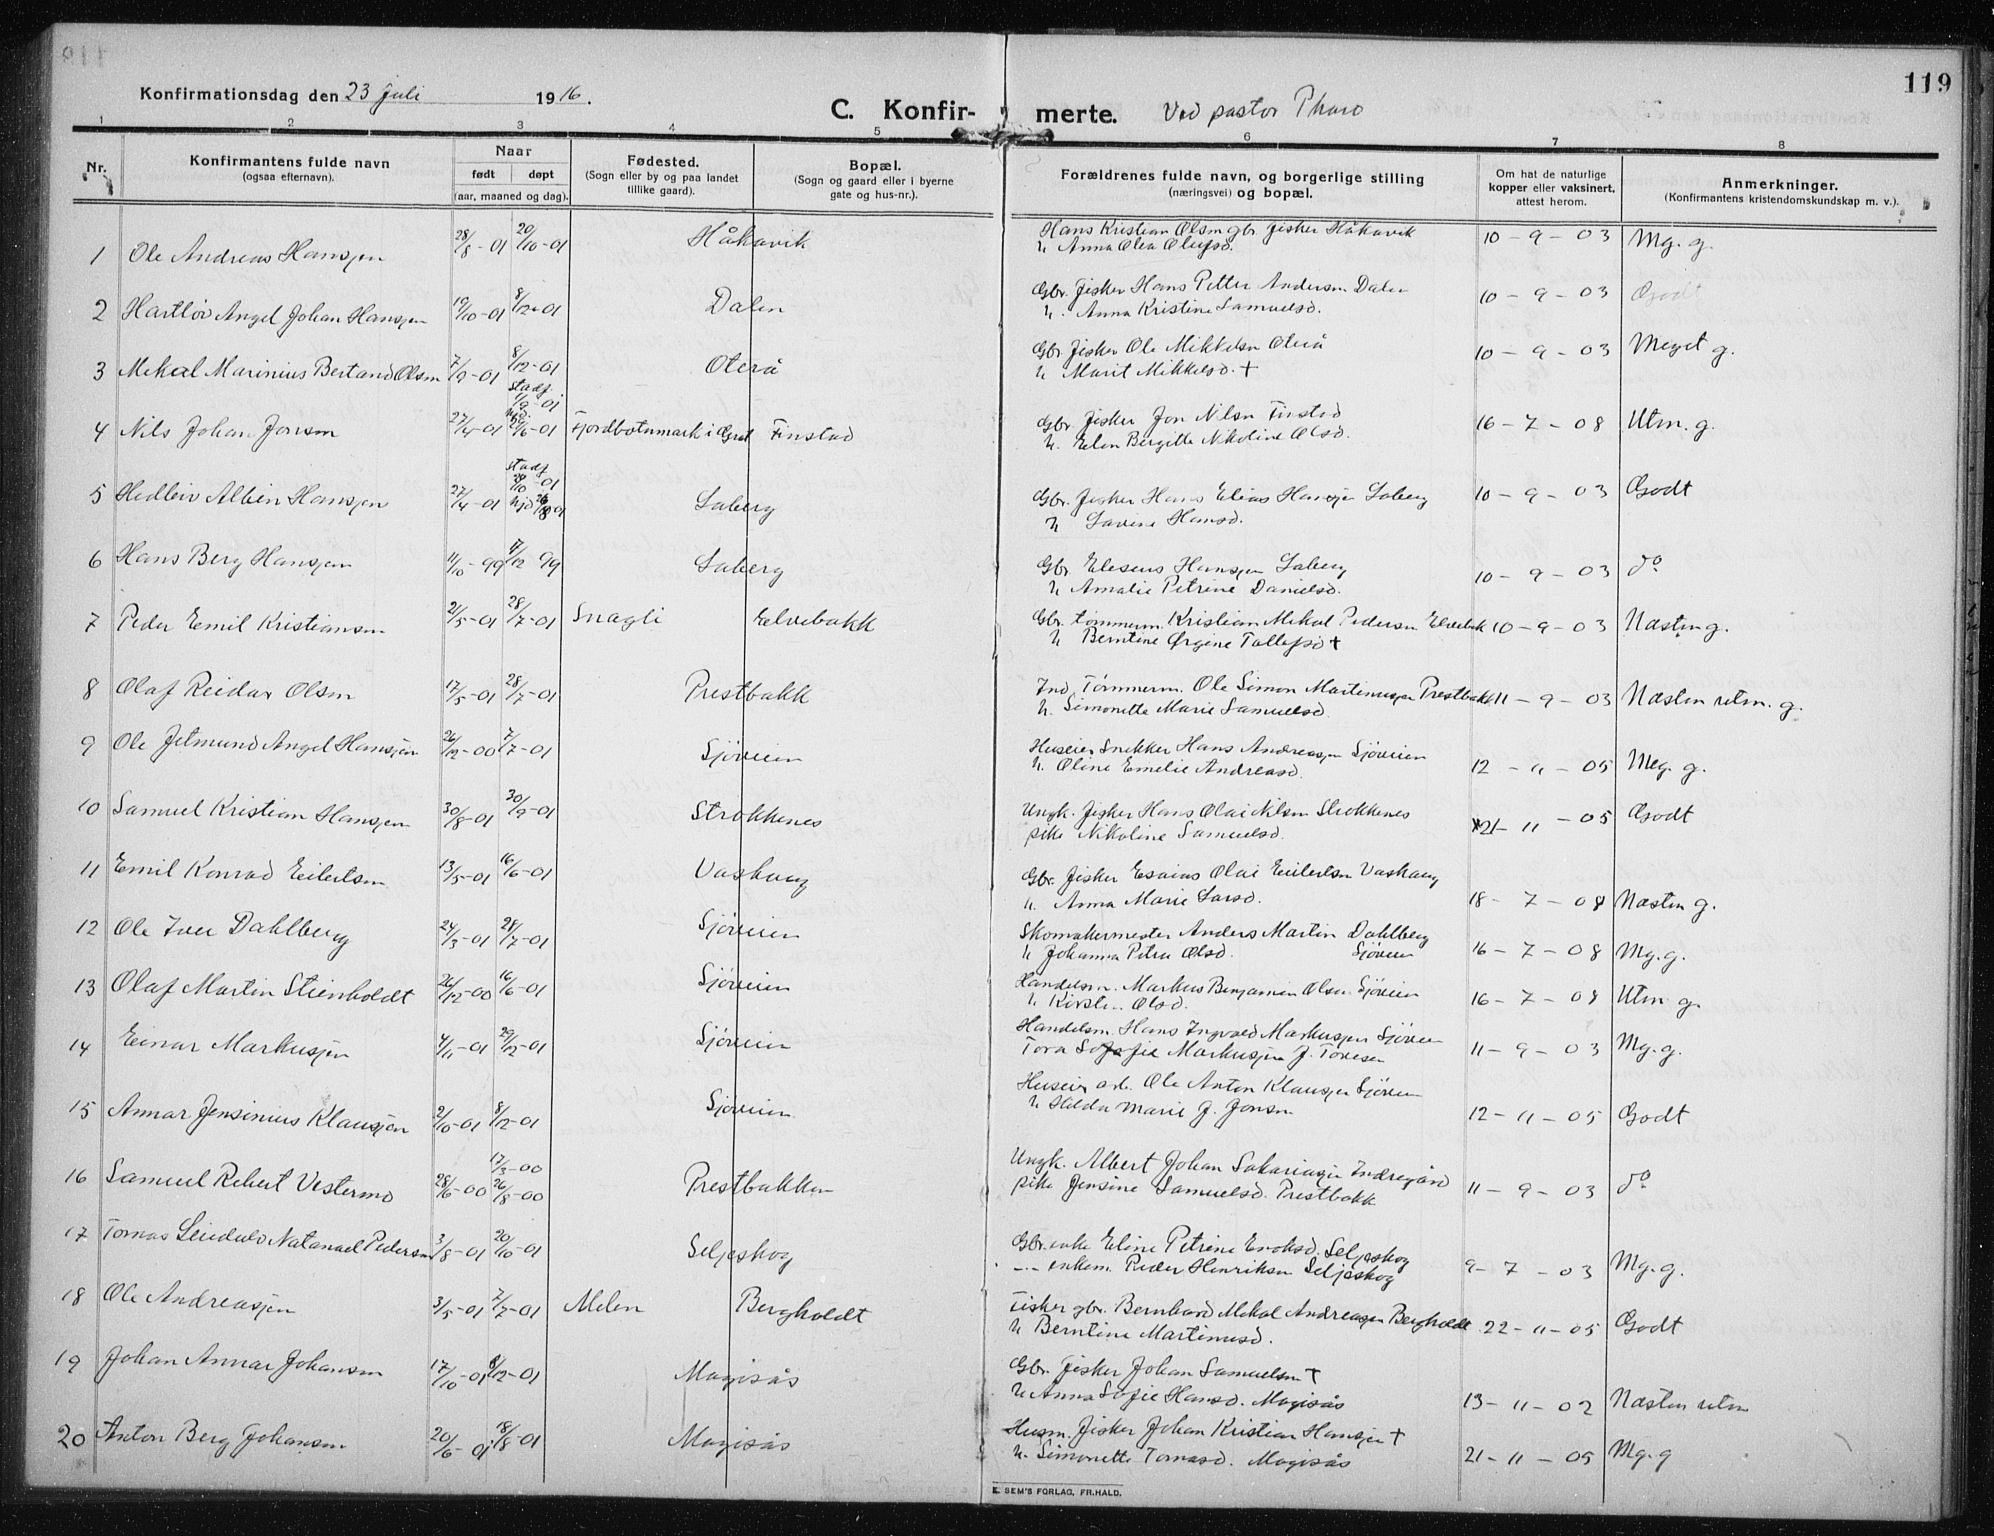 119
Konfirmationsdag den 23 Juli 1916.
C. Konfirmerte. Ved pastor Pharo
1 2 3 4 5 6 7 8
Nr. Konfirmantens fulde navn (ogsaa efternavn). Naar født døpt (aar, maaned og dag). Fødested. (Sogn eller by og paa landet tillike gaard). Bopæl. (Sogn og gaard eller i byerne gate og hus-nr.). Forældrenes fulde navn, og borgerlige stilling (næringsvei) og bopæl. Om hat de naturlige kopper eller vaksinert, attest herom. Anmerkninger. (Konfirmantens kristendomskundskap m. v.).
1 Ole Andreas Hansen 28/8-01 20/10-01 Håkavik Hans Kristian Olsen gbr. fisker Håkavik 10-9-03 Mg. g.
h. Anna Olea Olufsd.
2 Hartløv Angel Johan Hansen 19/10-01 8/12-01 Dalen Gbr. fisker Hans Petter Andersen Dalen 10-9-03 Godt
h. Anna Kristine Samuelsd.
3 Mekal Marinius Bertand Olsen 7/9-01 8/12-01 Oterå Gbr. fisker Ole Mikkelsen Oterå 10-9-03 Meget g.
h. Marit Mikkelsd. †
4 Nils Johan Jonsen 27/4-01 stadf. 1/9-01 Fjordbotnmark i Grat. Finstad Gbr. fisker Jon Nilsen Finstad 16-7-08 Utm. g.
h. Elen Bergitte Nikoline Olsd.
5 Hedleiv Albin Hansen 27/4-01 stadf. Laberg Gbr. fisker Hans Elias Hansen Laberg 10-9-03 Godt
h. Lavine Hansd.
6 Hans Berg Hansen 11/10-99 17/12 99 Laberg Gbr. Eleseus Hansen Laberg 10-9-03 do
h. Amalie Petrine Danielsd.
7 Peder Emil Kristiansen 21/5-01 28/7-01 Snagli Elvebakk Gbr. tømmerm. Kristian Mekal Pedersen Elvebak 10-9-03 Næsten g.
h. Berntine Ørgine Tollefsd †
8 Olaf Reidar Olsen 17/5-01 28/7-01 Prestbakk Ind. Tømmerm. Ole Simon Martinussen Prestbakk 11-9-03 Næsten utm. g.
h. Simonette Marie Samuelsd.
9 Ole Jetmund Angel Hansen 26/12-00 7/7-01 Sjøveien Huseier Snekker Hans Andreassen Sjøveien 12-11-05 Meg. g.
h. Oline Emelie Andreasd.
10 Samuel Kristian Hansen 30/8-01 30/9-01 Strokkenes Ungk. fisker Hans Olai Nilsen Strokkenes 21-11-05 Godt
pike Nikoline Samuelsd.
11 Emil Konrad Eilertsen 13/5-01 16/6-01 Vashaug Gbr. fisker Esaias Olai Eilertsen Vashaug 18-7-08 Næsten g.
h. Anna Marie Larsd.
12 Ole Iver Dahlberg 24/3-01 28/7-01 Sjøveien Skomakermester Anders Martin Dahlberg 16-7-08 Mg. g.
h Johanna Petra Olsd. Sjøveien
13 Olaf Martin Stienholdt 26/12-00 16/6-01 Sjøveien Handelsm. Markus Benjamin Olsen Sjøveien 16-7-08 Utm g.
h. Kirsten Olsd.
14 Einar Markussen 4/11-01 29/12-01 Sjøveien Handelsm. Hans Ingvald Markussen Sjøveien 11-9-03 Mg. g.
Tora Sofie Markussen f. Toresen
15 Annar Jensinius Klaussen 2/10-01 8/12-01 Sjøveien Huseier arb. Ole Anton Klaussen Sjøveien 12-11-05 Godt
h Hilda Marie f. Jonsen
16 Samuel Robert Vestermo 28/6-00 17/3-00 26/8-00 Prestbakken Ungk. Albert Johan Sakariassen Indregård 11-9-03 do
pike Jensine Samuelsd. Prestbakk
17 Tomas Leidulv Natanael Pedersen 3/8-01 20/10-01 Seljeskog Gbr. enke Eline Petrine Enoksd. Seljeskog 9-7-03 Mg. g.
-"- enkem. Peder Henriksen Seljeskog
18 Ole Andreassen 3/5-01 7/7-01 Melen Bergholdt Fisker gbr. Bernhard Mekal Andreassen Bergholdt 22-11-05 Godt
h Berntine Martinusd.
19 Johan Annar Johansen 17/10-01 8/12-01 Magisås Gbr. fisker Johan Samuelsen † 13-11-02 Næsten utm
h Anna Sofie Hansd. Magisås
20 Anton Berg Johansen 20/6-01 18/8-01 Magisås Husm. fisker Johan Kristian Hansen † 21-11-05 Mg. g
h. Simonette Tomasd. Magisås
E. SEM'S FORLAG, FR.HALD.